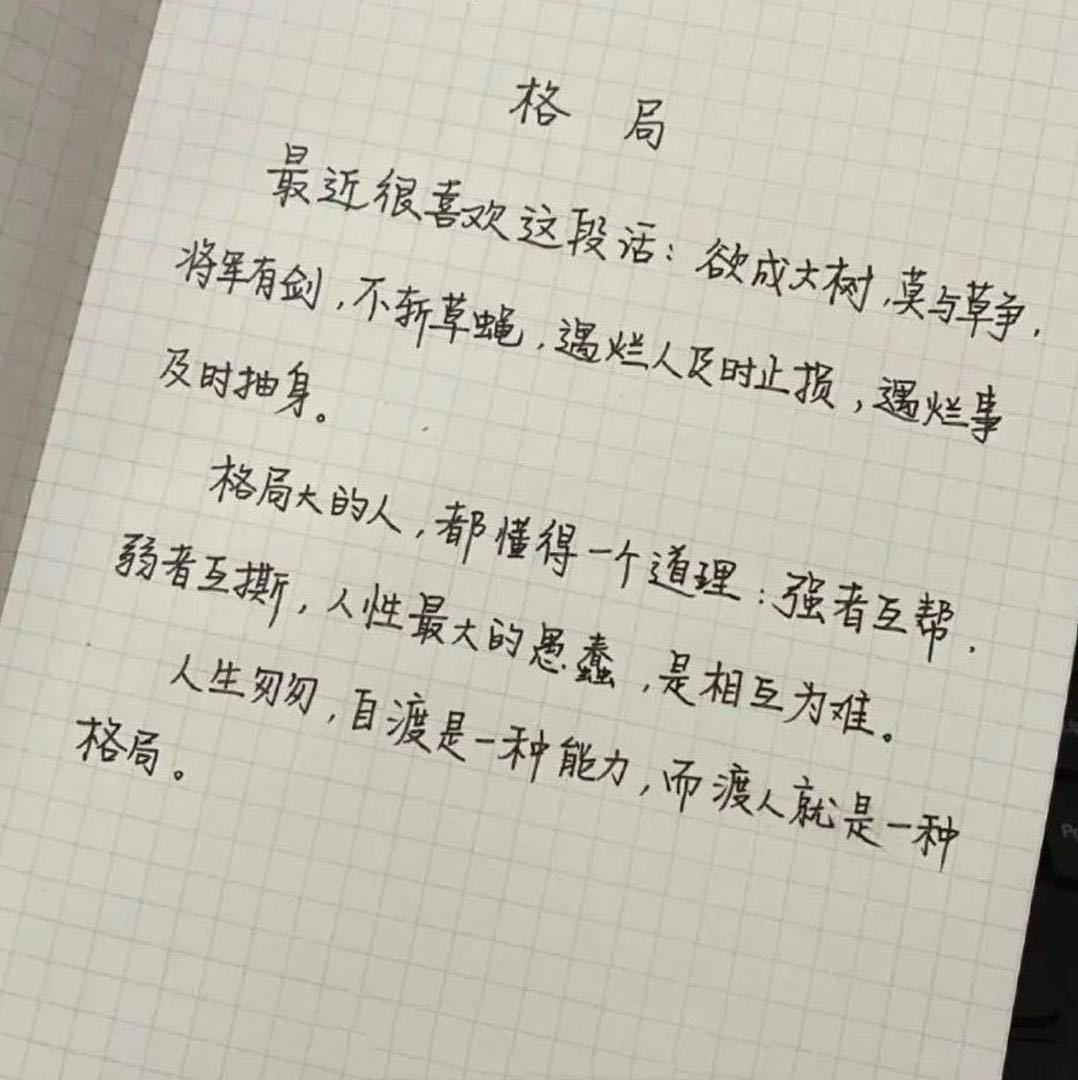 格 局
最近很喜欢这段话：欲成大树，莫与草争，
将军有剑，不斩草蝇，遇烂人及时止损，遇烂事
及时抽身。
格局大的人，都懂得一个道理：强者互帮，
弱者互撕，人性最大的愚蠢，是相互为难。
人生匆匆，自渡是一种能力，而渡人就是一种
格局。